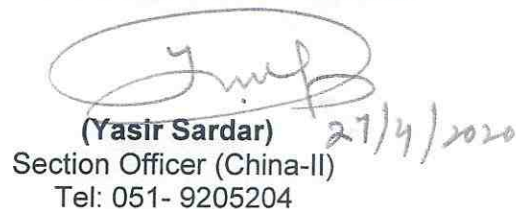 (Yasir Sardar) 27/4/2020
Section Officer (China-II)
Tel: 051- 9205204